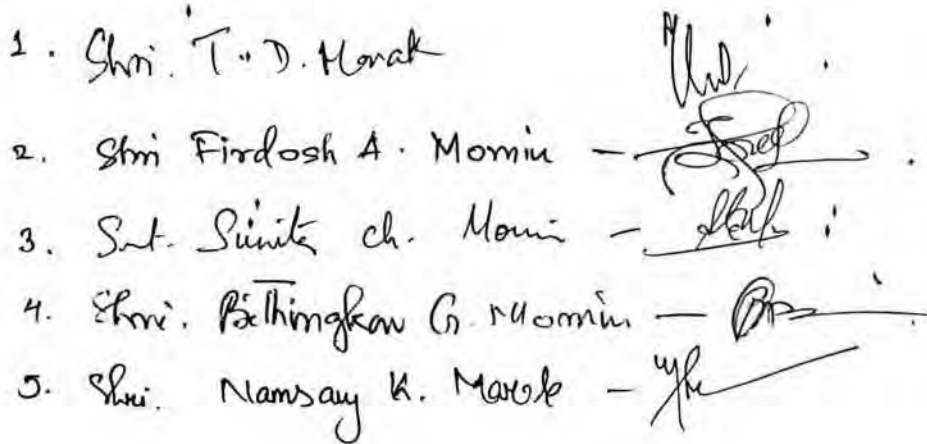 1. Shri. T. D. Marak
2. Shri Firdosh A. Momin -
3. Smt. Sunita ch. Momin -
4. Shri. Bithingkan G. Momin -
5. Shri. Namsay K. Marak -